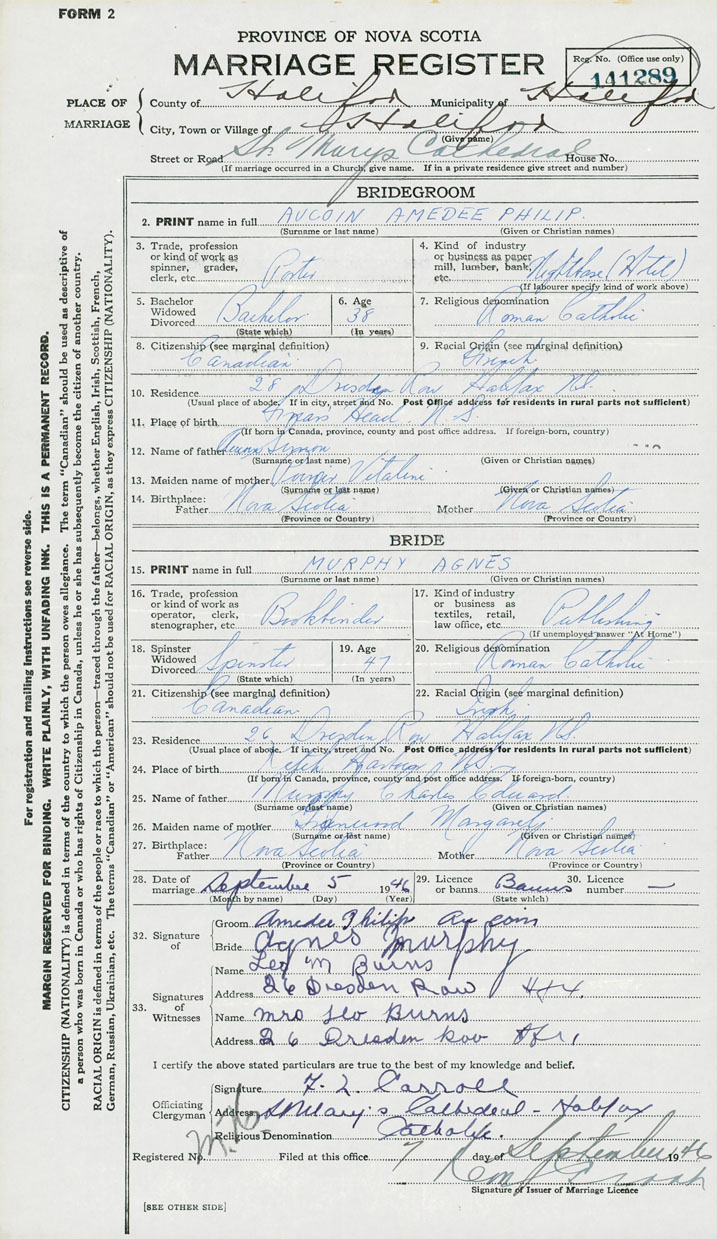 FORM 2
PROVINCE OF NOVA SCOTIA
MARRIAGE REGISTER
Reg. No. (Office use only)
141289
PLACE OF MARRIAGE
County of Halifax Municipality of Halifax
City, Town or Village of Halifax
(Give name)
Street or Road St. Marys Cathedral House No.
(If marriage occurred in a Church, give name. If in a private residence give street and number)
BRIDEGROOM
2. PRINT name in full AUCOIN AMEDEE PHILIP.
(Surname or last name) (Given or Christian names)
3. Trade, profession or kind of work as spinner, grader, clerk, etc. Porter
4. Kind of industry or business as paper mill, lumber, bank, etc. (Hotel)
(If labourer specify kind of work above)
5. Bachelor Widowed Divorced Bachelor
(State which)
6. Age 38
(In years)
7. Religious denomination Roman Catholic
8. Citizenship (see marginal definition) Canadian
9. Racial Origin (see marginal definition) French
10. Residence 28 Dresden Row Halifax N.S.
(Usual place of abode. If in city, street and No. Post Office address for residents in rural parts not sufficient)
11. Place of birth Head N.S.
(If born in Canada, province, county and post office address. If foreign-born, country)
12. Name of father
(Surname or last name) (Given or Christian names)
13. Maiden name of mother
(Surname or last name) (Given or Christian names)
14. Birthplace: Father Nova Scotia Mother Nova Scotia
(Province or Country) (Province or Country)
BRIDE
15. PRINT name in full MURPHY AGNES
(Surname or last name) (Given or Christian names)
16. Trade, profession or kind of work as operator, clerk, stenographer, etc. Bookbinder
17. Kind of industry or business as textiles, retail, law office, etc. Publishing
(If unemployed answer "At Home")
18. Spinster Widowed Divorced Spinster
(State which)
19. Age 47
(In years)
20. Religious denomination Roman Catholic
21. Citizenship (see marginal definition) Canadian
22. Racial Origin (see marginal definition) Irish
23. Residence 26 Dresden Row Halifax N.S.
(Usual place of abode. If in city, street and No. Post Office address for residents in rural parts not sufficient)
24. Place of birth Harbour N.S.
(If born in Canada, province, county and post office address. If foreign-born, country)
25. Name of father Murphy Charles Edward
(Surname or last name) (Given or Christian names)
26. Maiden name of mother Margaret
(Surname or last name) (Given or Christian names)
27. Birthplace: Father Nova Scotia Mother Nova Scotia
(Province or Country) (Province or Country)
28. Date of marriage September 5 1946
(Month by name) (Day) (Year)
29. Licence or banns. Banns
(State which)
30. Licence number —
32. Signature of
Groom Amedee Philip Aucoin
Bride Agnes Murphy
33. Signatures of Witnesses
Name Leo M Burns
Address 26 Dresden Row
Name Mrs Leo Burns
Address 26 Dresden Row
I certify the above stated particulars are true to the best of my knowledge and belief.
Officiating Clergyman
Signature F. L. Carroll
Address St Mary's Cathedral - Halifax
Religious Denomination Catholic.
Registered No. Filed at this office 7 day of September 1946
Signature of Issuer of Marriage Licence
[SEE OTHER SIDE]
For registration and mailing instructions see reverse side.
MARGIN RESERVED FOR BINDING. WRITE PLAINLY, WITH UNFADING INK. THIS IS A PERMANENT RECORD.
CITIZENSHIP (NATIONALITY) is defined in terms of the country to which the person owes allegiance. The term "Canadian" should be used as descriptive of
a person who was born in Canada or who has rights of Citizenship in Canada, unless he or she has subsequently become the citizen of another country.
RACIAL ORIGIN is defined in terms of the people or race to which the person—traced through the father—belongs, whether English, Irish, Scottish, French,
German, Russian, Ukrainian, etc. The terms "Canadian" or "American" should not be used for RACIAL ORIGIN, as they express CITIZENSHIP (NATIONALITY).